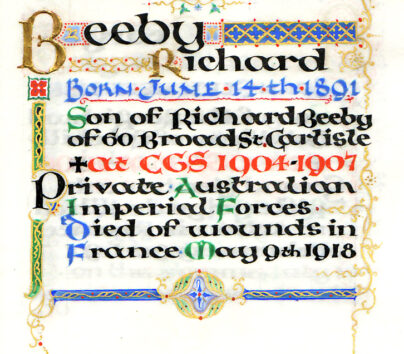 Beeby
Richard
Born·June·14·th·1891
Son of Richard Beeby
of 60 Broad St. Carlisle
✠at CGS 1904-1907
Private Australian
Imperial Forces·
Died of wounds in
France·May 9th 1918